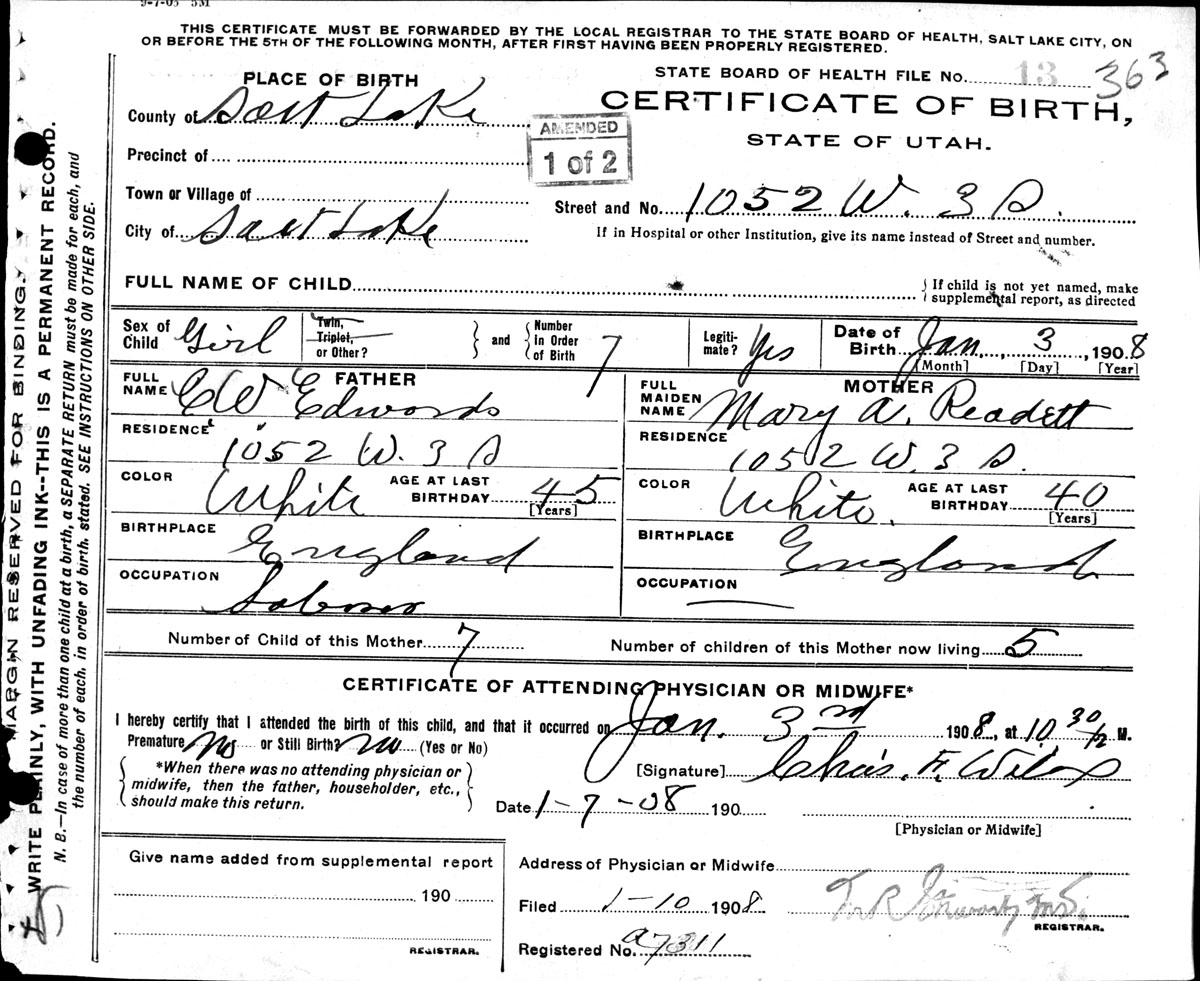 9-7-05 5M
THIS CERTIFICATE MUST BE FORWARDED BY THE LOCAL REGISTRAR TO THE STATE BOARD OF HEALTH, SALT LAKE CITY, ON
OR BEFORE THE 5TH OF THE FOLLOWING MONTH, AFTER FIRST HAVING BEEN PROPERLY REGISTERED.
PLACE OF BIRTH
STATE BOARD OF HEALTH FILE No. 13 363
County of Salt Lake
CERTIFICATE OF BIRTH,
STATE OF UTAH.
AMENDED
1 of 2
Precinct of
Town or Village of
Street and No. 1052 W. 3 S.
City of Salt Lake
If in Hospital or other Institution, give its name instead of Street and number.
FULL NAME OF CHILD
If child is not yet named, make
supplemental report, as directed
Sex of Child Girl
Twin, Triplet, or Other?
and
Number In Order of Birth 7
Legiti-mate? Yes
Date of Birth Jan. 3, 1908
[Month] [Day] [Year]
FATHER
FULL NAME C W Edwards
MOTHER
FULL MAIDEN NAME Mary A. Readett
RESIDENCE 1052 W. 3 S
RESIDENCE 1052 W. 3 S.
COLOR White
AGE AT LAST BIRTHDAY 45
[Years]
COLOR White.
AGE AT LAST BIRTHDAY 40
[Years]
BIRTHPLACE England
BIRTHPLACE England
OCCUPATION Laborer
OCCUPATION
Number of Child of this Mother 7
Number of children of this Mother now living 5
CERTIFICATE OF ATTENDING PHYSICIAN OR MIDWIFE*
I hereby certify that I attended the birth of this child, and that it occurred on Jan. 3rd 1908, at 10 30 M.
Premature No or Still Birth? no (Yes or No)
*When there was no attending physician or
midwife, then the father, householder, etc.,
should make this return.
[Signature] Chas. F. Wilcox
Date 1-7-08 190
[Physician or Midwife]
Give name added from supplemental report
190
REGISTRAR.
Address of Physician or Midwife
Filed 1-10 1908
REGISTRAR.
Registered No. a7311
MARGIN RESERVED FOR BINDING.
WRITE PLAINLY, WITH UNFADING INK--THIS IS A PERMANENT RECORD.
N. B.—In case of more than one child at a birth, a SEPARATE RETURN must be made for each, and
the number of each, in order of birth, stated. SEE INSTRUCTIONS ON OTHER SIDE.